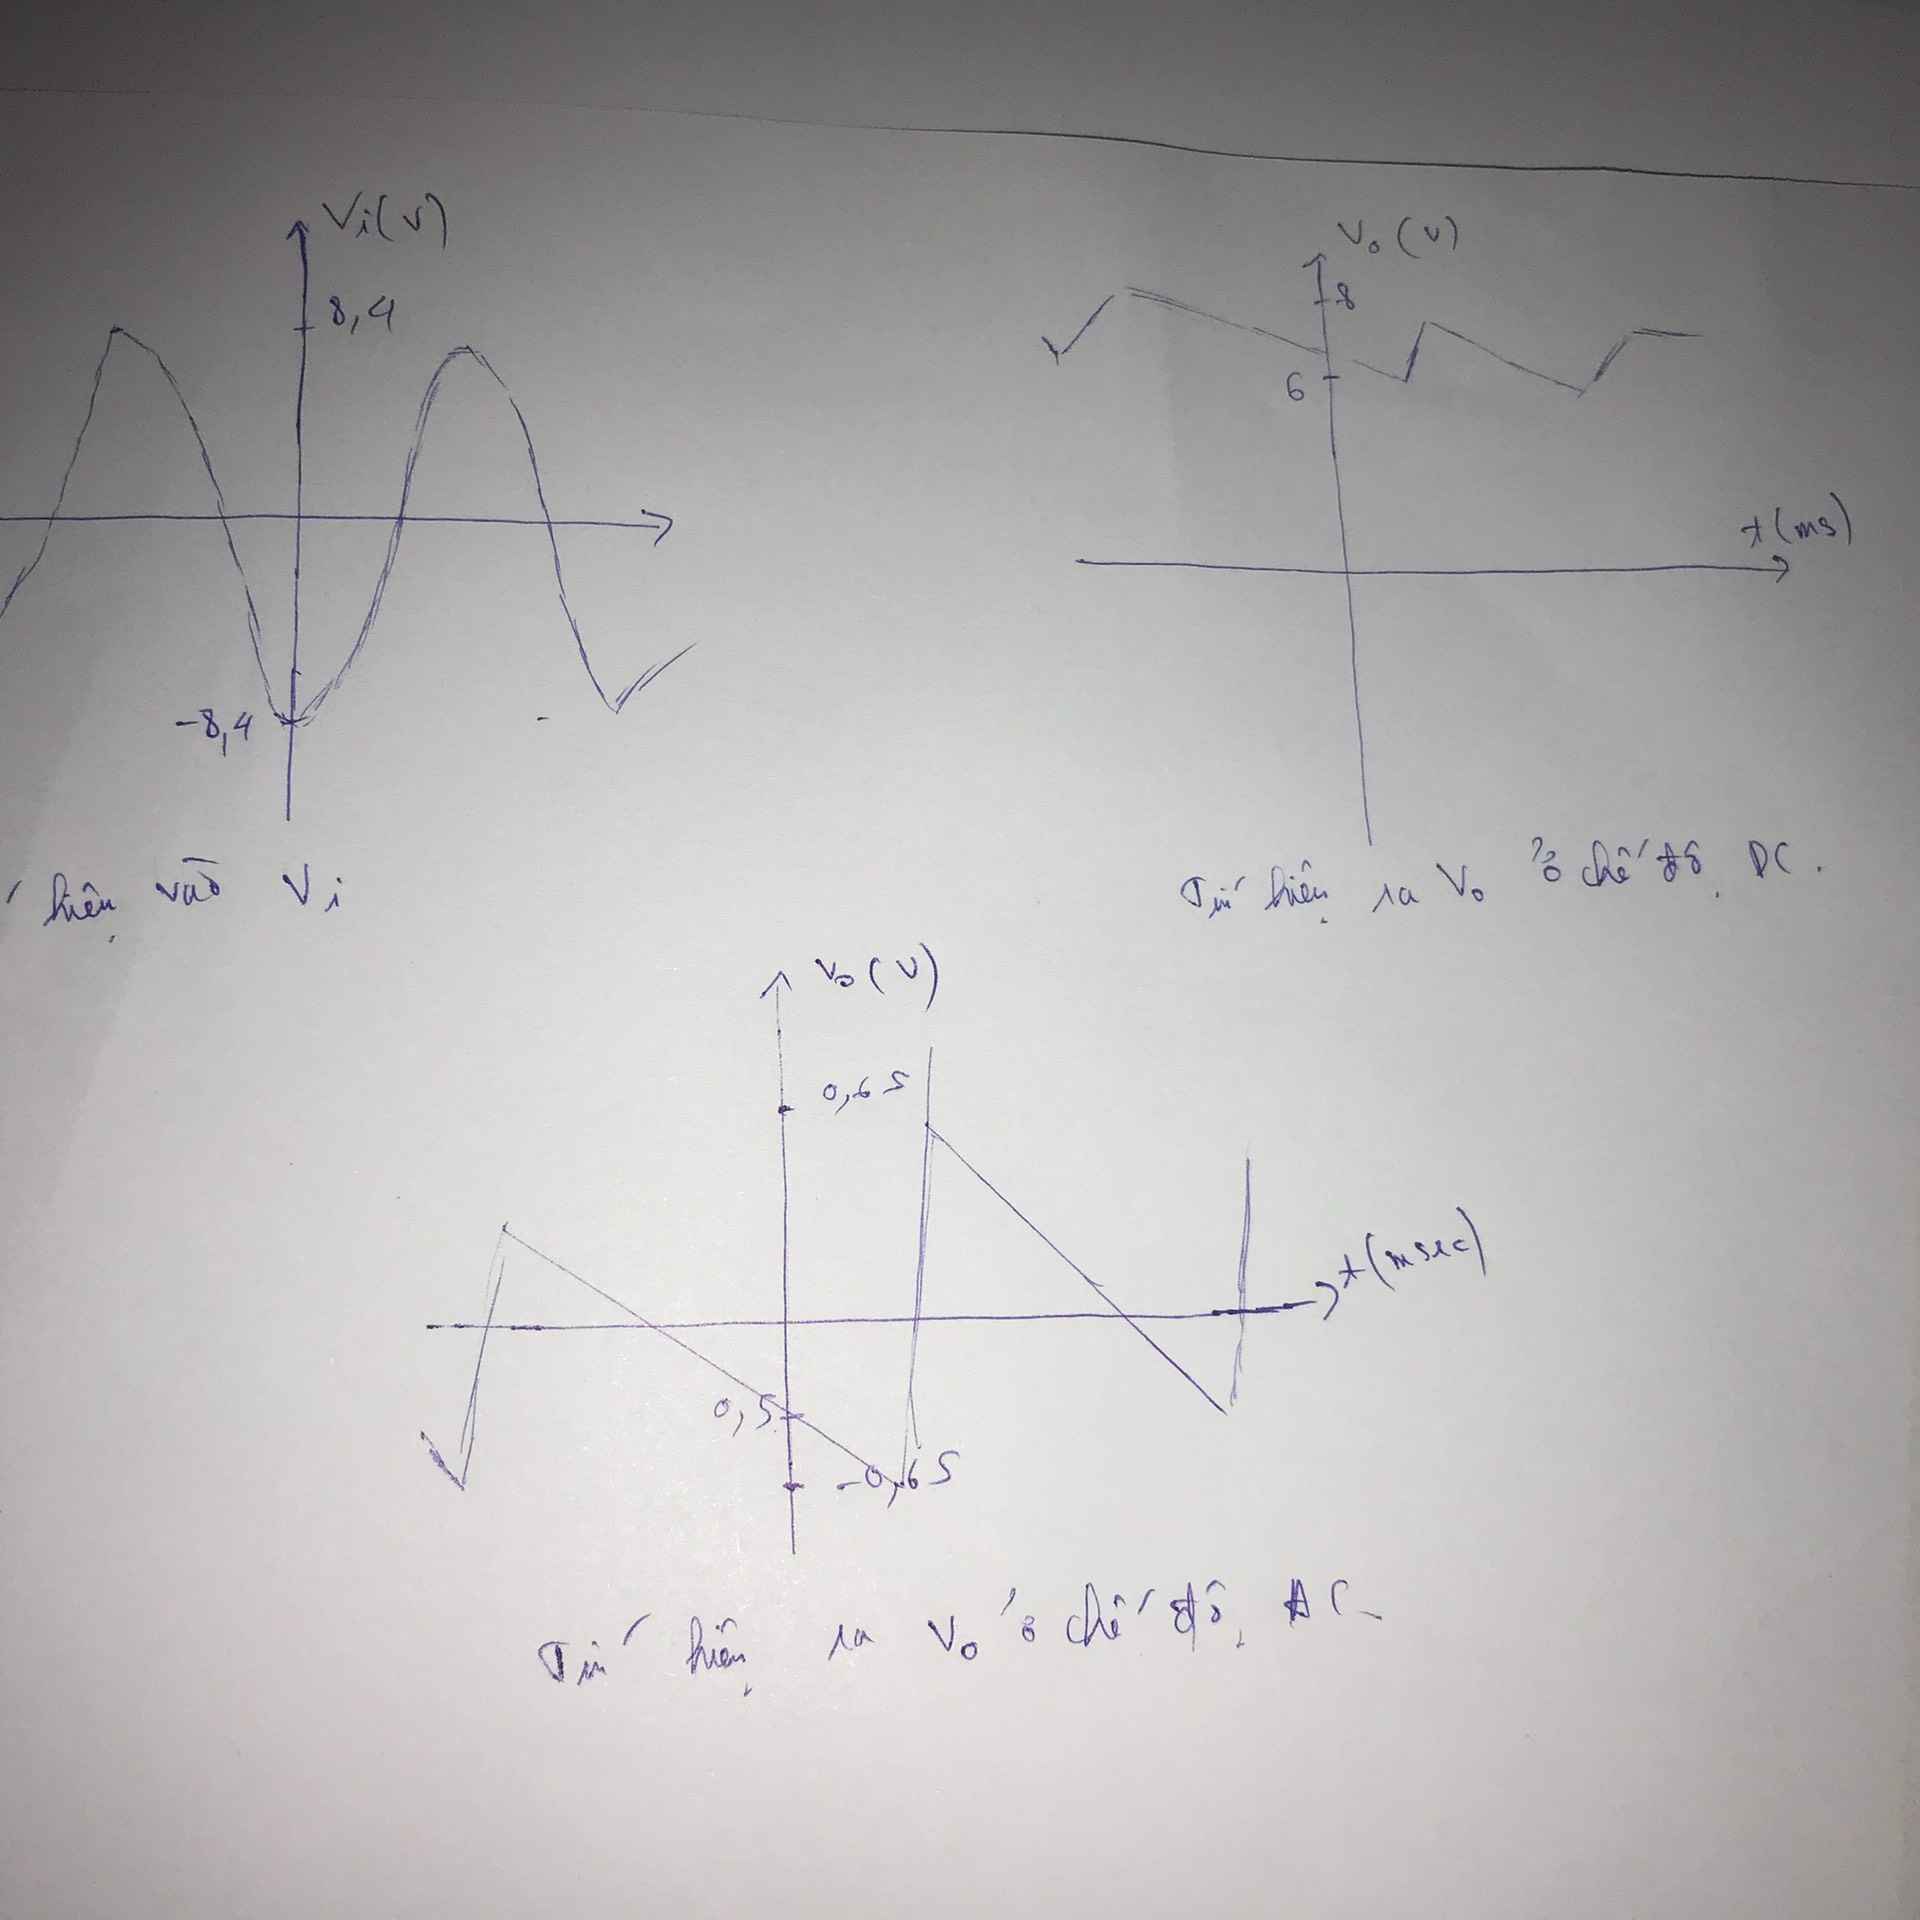 Vi(V)
8,4
-8,4
hiệu vào Vi
Vo (V)
8
6
t (ms)
Tín hiệu ra Vo ở chế độ DC.
Vo (V)
0,65
t (msec)
0,5
-0,65
Tín hiệu ra Vo ở chế độ AC